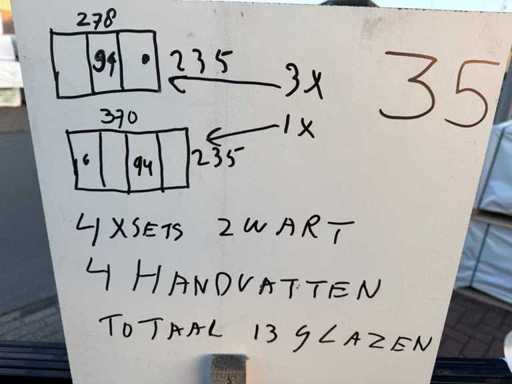 278
94
235
3X
35
370
1X
6
94
235
4 XSETS ZWART
4 HANDVATTEN
TOTAAL 13 gLAZEN